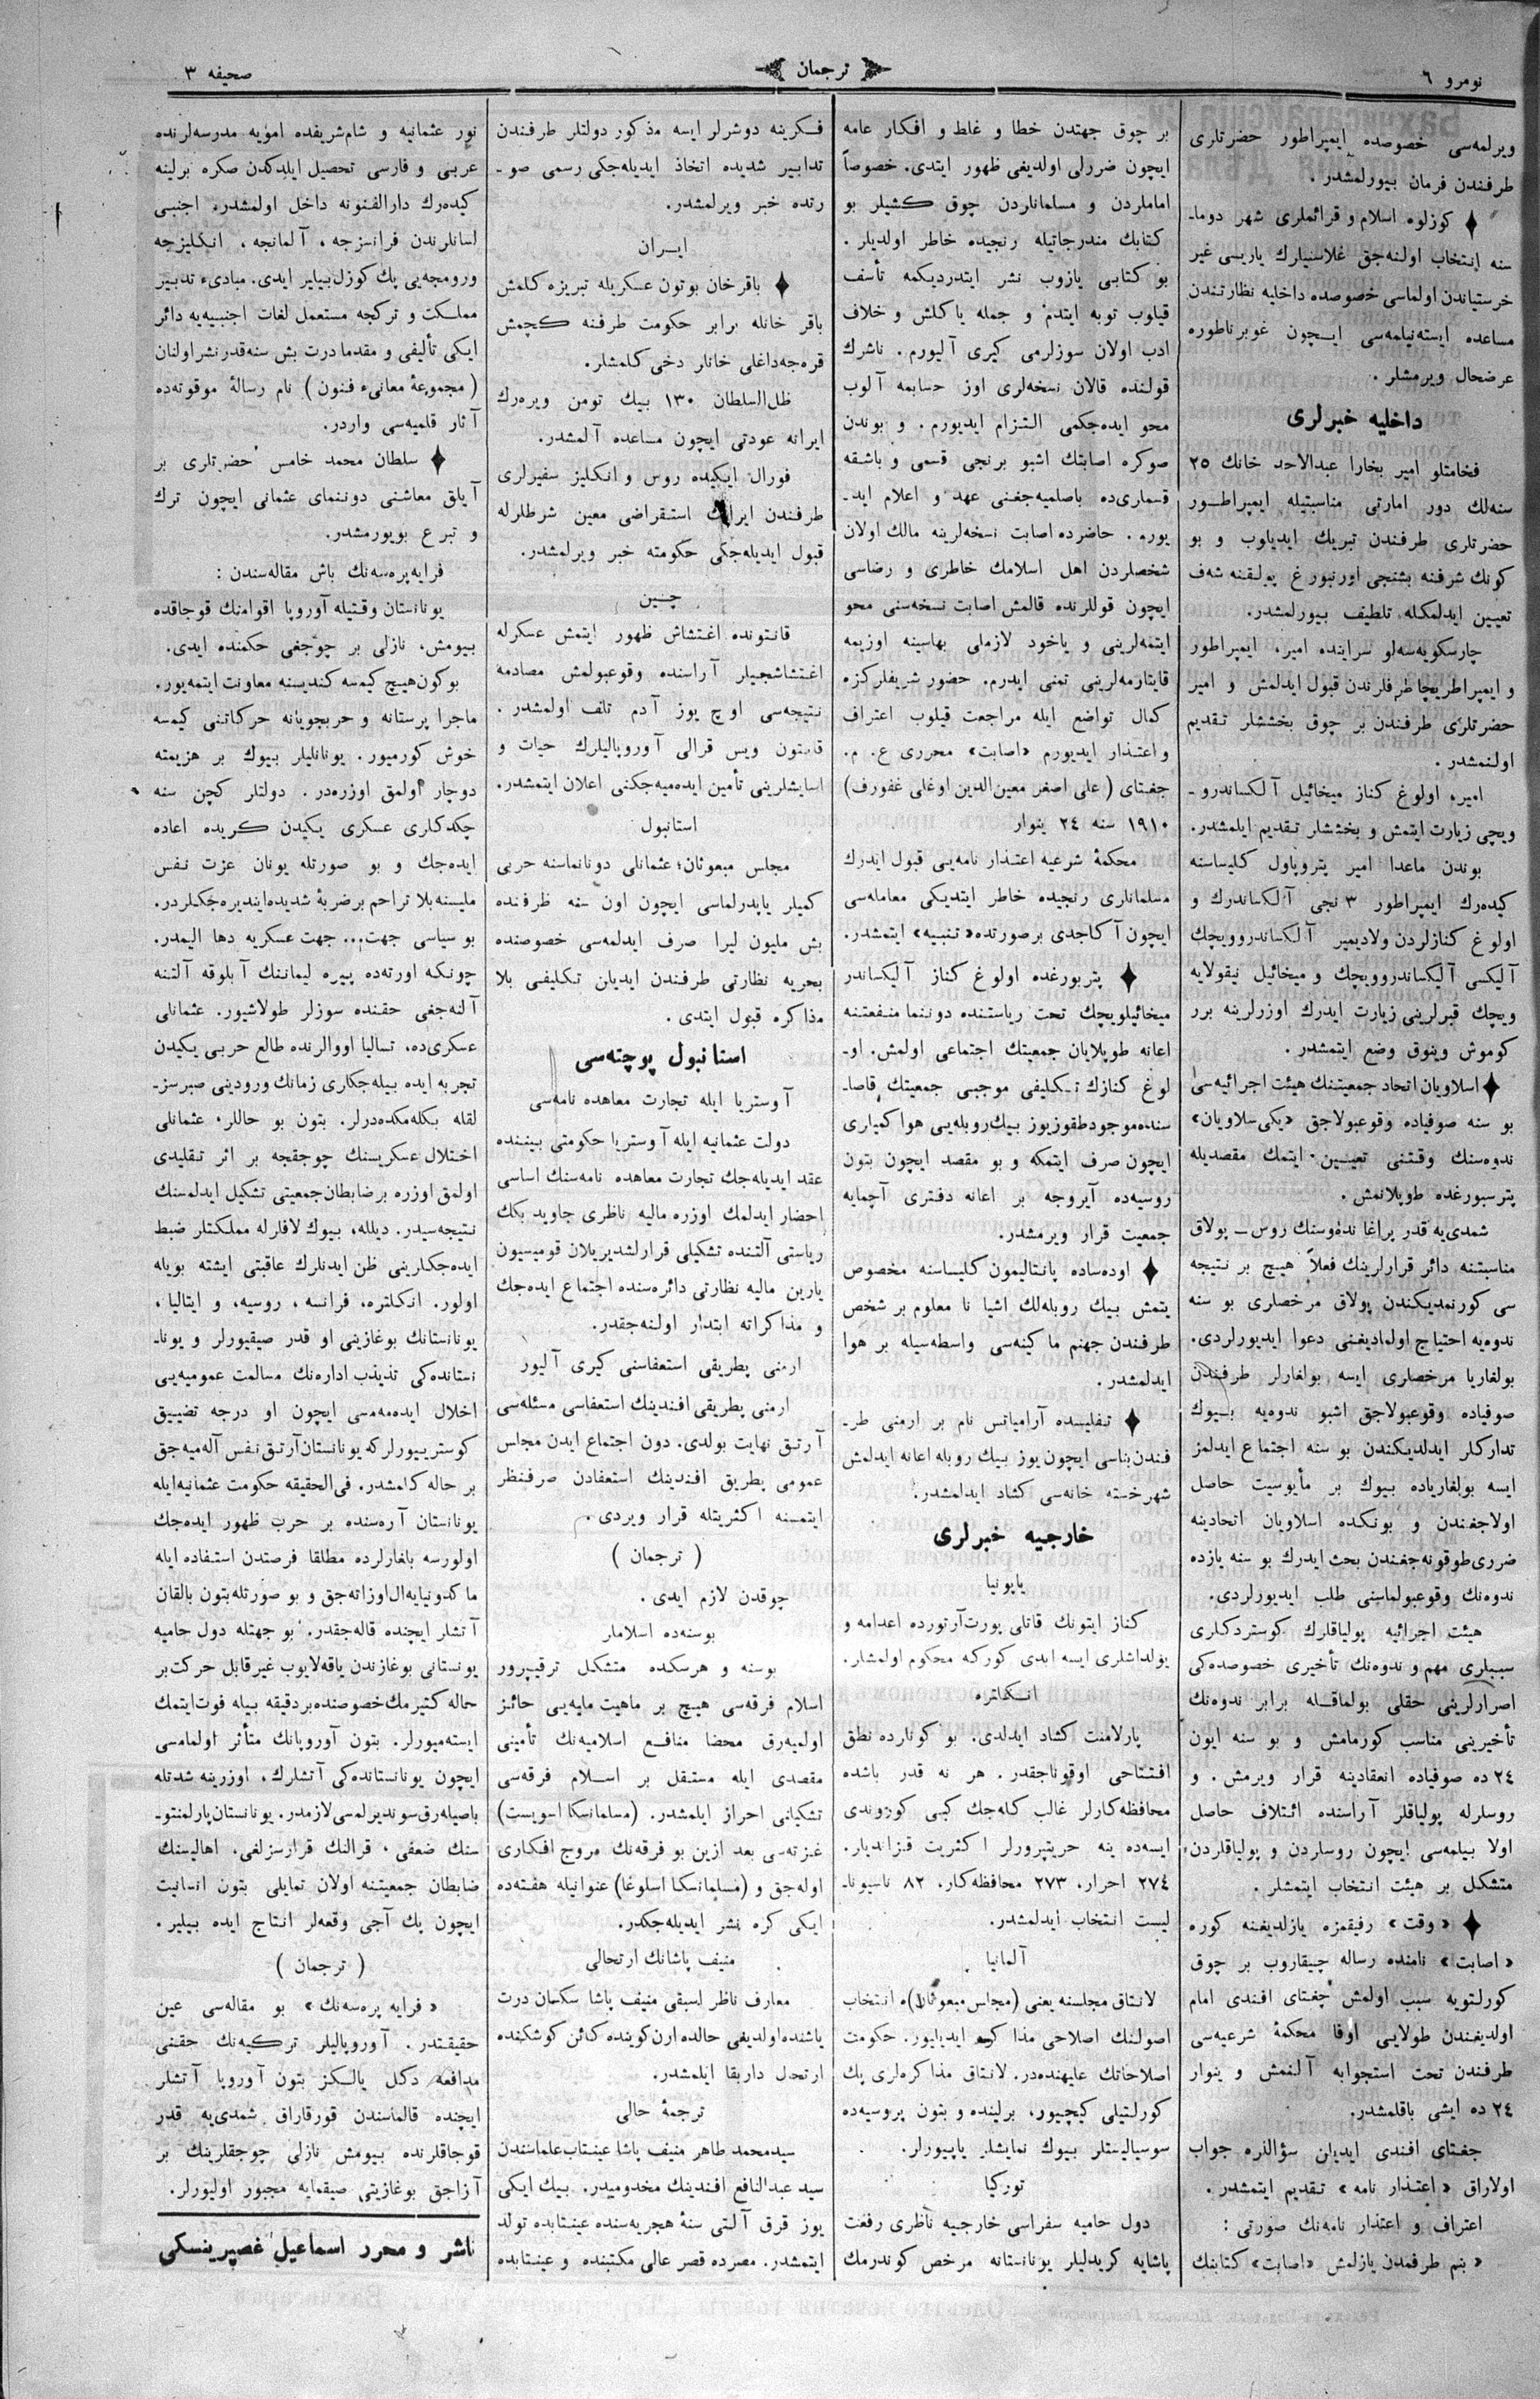 نومرو ٦
ترجمان
صحیفه ٣
ویرلمه‌سی خصوصده ایمپراطور حضرتلری
طرفندن فرمان بیورلمشدر.
کوزلوه اسلام و قرائملری شهر دوما-
سنه انتخاب اولنه‌جق غلاسنیلرك یاریسی غیر
خرستیاندن اولماسی خصوصده داخلیه نظارتندن
مساعده ایسته‌نیلمه‌سی ایچون غوبرناطوره
عرضحال ویرمشلر.
داخلیه خبرلری
فخامتلو امیر بخارا عبدالاحد خانك ٢٥
سنه‌لك دور امارتی مناسبتیله ایمپراطور
حضرتلری طرفندن تبریك ایدیلوب و بو
کونك شرفنه بشنجی اورنبورغ پولقنه شه‌ف
تعیین ایدلمکله تلطیف بیورلمشدر.
چارسکویه‌سه‌لو سراینده امیر، ایمپراطور
و ایمپراطریچا طرفلرندن قبول ایدلمش و امیر
حضرتلری طرفندن بر چوق بخششلر تقدیم
اولنمشدر.
امیر، اولوغ کناز میخائیل آلکساندرو-
ویچی زیارت ایتمش و بخششلر تقدیم ایلمشدر.
بوندن ماعدا امیر پتروپاول کلیساسنه
کیده‌رك ایمپراطور ٣ نجی آلکساندرك و
اولوغ کنازلردن ولادیمیر آلکساندروویچك
آلیکسی آلیکساندروویچك و میخائیل نیقولایه
ویچك قبرلرینی زیارت ایدرك اوزرلرینه برر
کوموش وینوق وضع ایتمشدر.
اسلاویان اتحاد جمعیتنك هیئت اجرائیه‌سی
بو سنه صوفیاده وقوعبولاجق «یکی سلاویان»
ندوه‌سنك وقتنی تعیین ایتمك مقصدیله
پترسبورغده طوپلانمش.
شمدی‌یه قدر پراغا ندوه‌سنك روس — پولاق
مناسبتنه دائر قرارلرینك فعلاً هیچ بر نتیجه
سی کورنمدیکندن پولاق مرخصلری بو سنه
ندوه‌یه احتیاج اولمادیغنی دعوا ایدیورلردی.
بولغاریا مرخصلری ایسه بولغارلر طرفندن
صوفیاده وقوعبولاجق اشبو ندوه‌یه بیوك
تدارکلر ایدلدیکندن بو سنه اجتماع ایدلمز
ایسه بولغاریاده بیوك بر مأیوسیت حاصل
اولاجغندن و بونکده اسلاویان اتحادینه
ضرری طوقونه‌جغندن بحث ایدرك بو سنه یازده
ندوه‌نك وقوعبولماسنی طلب ایدیورلردی.
هیئت اجرائیه پولیاقلرك کوستردکلری
سببلری مهم و ندوه‌نك تأخیری خصوصده‌کی
اصرارلرینی حقلی بولماقله برابر ندوه‌نك
تأخیرینی مناسب کورمامش و بو سنه ایون
٢٤ ده صوفیاده انعقادینه قرار ویرمش. و
روسلرله پولیاقلر آراسنده ائتلاف حاصل
اولا بیلمه‌سی ایچون روسلردن و پولیاقلردن
متشکل بر هیئت انتخاب ایتمشلر.
«وقت» رفیقمزه یازلدیغنه کوره
«اصابت» نامنده رساله چیقاروب بر چوق
کورلتویه سبب اولمش چغتای افندی امام
اولدیغندن طولایی اوفا محکمهٔ شرعیه‌سی
طرفندن تحت استجوابه آلنمش و ینوار
٢٤ ده ایشی باقلمشدر.
جغتای افندی ایدیلن سؤاللره جواب
اولاراق «اعتذار نامه» تقدیم ایتمشدر.
اعتراف و اعتذار نامه‌نك صورتی:
« بنم طرفمدن یازلمش «اصابت» کتابنك
بر چوق جهتدن خطا و غلط و افکار عامه
ایچون ضررلی اولدیغی ظهور ایتدی. خصوصاً
اماملردن و مسلمانلردن چوق کشیلر بو
کتابك مندرجاتیله رنجیده خاطر اولدیلر.
بو کتابی یازوب نشر ایتدردیکمه تأسف
قیلوب توبه ایتدم و جمله یاکلش و خلاف
ادب اولان سوزلرمی کیری آلیورم. ناشرك
قولنده قالان نسخه‌لری اوز حسابمه آلوب
محو ایده‌جکمی التزام ایدیورم. و بوندن
صوکره اصابتك اشبو برنجی قسمی و باشقه
قسملری‌ده باصلمیه‌جغنی عهد و اعلام اید-
یورم. حاضرده اصابت نسخه‌لرینه مالك اولان
شخصلردن اهل اسلامك خاطری و رضاسی
ایچون قوللرنده قالمش اصابت نسخه‌سنی محو
ایتمه‌لرینی و یاخود لازملی بهاسینه اوزیمه
قایتارمه‌لرینی تمنی ایدرم. حضور شریفلرکزه
کمال تواضع ایله مراجعت قیلوب اعتراف
و اعتذار ایدیورم «اصابت» محرری ع. م.
جغتای (علی اصغر معین‌الدین اوغلی غفورف)
١٩١٠ سنه ٢٤ ینوار
محکمهٔ شرعیه اعتذار نامه‌یی قبول ایدرك
مسلمانلری رنجیده خاطر ایتدیکی معامله‌سی
ایچون آکاجدی برصورتده «تنبیه» ایتمشدر.
پتربورغده اولوغ کناز آلیکساندر
میخائیلویچك تحت ریاستنده دوننما منفعتنه
اعانه طوپلایان جمعیتك اجتماعی اولمش. او-
لوغ کنازك تکلیفی موجبی جمعیتك قاصا-
سنده موجود طقوز یوز بیك روبله‌یی هوا کمیلری
ایچون صرف ایتمکه و بو مقصد ایچون بتون
روسیه‌ده آیروجه بر اعانه دفتری آچمایه
جمعیت قرار ویرمشدر.
اوده‌ساده پانتالیمون کلیساسنه مخصوص
یتمش بیك روبله‌لك اشیا نا معلوم بر شخص
طرفندن جهنم ماکینه‌سی واسطه‌سیله بر هوا
ایدلمشدر.
تفلیسده آرامیانس نام بر ارمنی طر-
فندن بناسی ایچون یوز بیك روبله اعانه ایدلمش
شهر خسته خانه‌سی کشاد ایدلمشدر.
خارجیه خبرلری
یاپونیا
کناز ایتونك قاتلی پورت‌آرتورده اعدامه و
یولداشلری ایسه ابدی کورکه محکوم اولمشلر.
انکلتره
پارلامنت کشاد ایدلدی. بو کونلرده نطق
افتتاحی اوقوناجقدر. هر نه قدر باشده
محافظه‌کارلر غالب کله‌جك کبی کوروندی
ایسه‌ده ینه حریتپرورلر اکثریت قزاندیلر.
٢٧٤ احرار، ٢٧٣ محافظه‌کار، ٨٢ ناسیونا-
لیست انتخاب ایدلمشدر.
آلمانیا
لانتاق مجلسنه یعنی (مجلس مبعوثان)ه انتخاب
اصولنك اصلاحی مذاکره ایدیلیور. حکومت
اصلاحاتك علیهنده‌در. لانتاق مذاکره‌لری پك
کورلتیلی کیچیور، برلینده و بتون پروسیه‌ده
سوسیالیستلر بیوك نمایشلر یاپیورلر.
تورکیا
دول حامیه سفراسی خارجیه ناظری رفعت
پاشایه کریدلیلر یونانستانه مرخص کوندرمك
فکرینه دوشرلر ایسه مذکور دولتلر طرفندن
تدابیر شدیده اتخاذ ایدیله‌جکی رسمی صو-
رتده خبر ویرلمشدر.
ایران
باقرخان بوتون عسکریله تبریزه کلمش
باقر خانله برابر حکومت طرفنه کچمش
قره‌جه‌داغلی خانلر دخی کلمشلر.
ظل‌السلطان ١٣٠ بیك تومن ویره‌رك
ایرانه عودتی ایچون مساعده آلمشدر.
فورال ایکیده روس و انکلیز سفیرلری
طرفندن ایرانك استقراضی معین شرطلرله
قبول ایدیله‌جکی حکومته خبر ویرلمشدر.
چین
قانتونده اغتشاش ظهور ایتمش عسکرله
اغتشاشجیلر آراسنده وقوعبولمش مصادمه
نتیجه‌سی اوچ یوز آدم تلف اولمشدر.
قانتون ویس قرالی آوروپالیلرك حیات و
اسایشلرینی تأمین ایده‌میه‌جکنی اعلان ایتمشدر.
استانبول
مجلس مبعوثان؛ عثمانلی دونانماسنه حربی
کمیلر یاپدرلماسی ایچون اون سنه ظرفنده
بش ملیون لیرا صرف ایدلمه‌سی خصوصنده
بحریه نظارتی طرفندن ایدیلن تکلیفی بلا
مذاکره قبول ایتدی.
استانبول پوچته‌سی
آوستریا ایله تجارت معاهده نامه‌سی
دولت عثمانیه ایله آوستریا حکومتی بیننده
عقد ایدیله‌جك تجارت معاهده نامه‌سنك اساسی
احضار ایدلمك اوزره مالیه ناظری جاوید بکك
ریاستی آلتنده تشکیلی قرارلشدیریلان قومیسیون
یارین مالیه نظارتی دائره‌سنده اجتماع ایده‌جك
و مذاکراته ابتدار اولنه‌جقدر.
ارمنی پطریقی استعفاسنی کیری آلیور
ارمنی پطریقی افندینك استعفاسی مسئله‌سی
آرتق نهایت بولدی. دون اجتماع ایدن مجلس
عمومی پطریق افندینك استعفادن صرفنظر
ایتمسنه اکثریتله قرار ویردی.
( ترجمان )
چوقدن لازم ایدی.
بوسنه‌ده اسلاملر
بوسنه و هرسکده متشکل ترقیپرور
اسلام فرقه‌سی هیچ بر ماهیت ملیه‌یی حائز
اولمیه‌رق محضا منافع اسلامیه‌نك تأمینی
مقصدی ایله مستقل بر اسلام فرقه‌سی
تشکیلنی احراز ایلمشدر. (مسلمانسکا اسویست)
غزته‌سی بعد ازین بو فرقه‌نك مروج افکاری
اوله‌جق و (مسلمانسکا اسلوغا) عنوانیله هفته‌ده
ایکی کره نشر ایدیله‌جکدر.
منیف پاشانك ارتحالی
معارف ناظر اسبقی منیف پاشا سکسان درت
یاشنده اولدیغی حالده ارن‌کوینده کائن کوشکنده
ارتحال داربقا ایلمشدر.
ترجمهٔ حالی
سیدمحمد طاهر منیف پاشا عینتاب علماسندن
سید عبدالنافع افندینك مخدومیدر. بیك ایکی
یوز قرق آلتی سنهٔ هجریه‌سنده عینتابده تولد
ایتمشدر. مصرده قصر عالی مکتبنده و عینتابده
نور عثمانیه و شام‌شریفده امویه مدرسه‌لرنده
عربی و فارسی تحصیل ایلدکدن صکره برلینه
کیده‌رك دارالفنونه داخل اولمشدر. اجنبی
لسانلرندن فرانسزجه، آلمانجه، انکلیزجه
ورومجه‌یی پك کوزل بیلیر ایدی. مبادیء تدبیر
مملکت و ترکجه مستعمل لغات اجنبیه‌یه دائر
ایکی تألیفی و مقدما درت بش سنه قدر نشر اولنان
(مجموعهٔ معانیء فنون) نام رسالهٔ موقوته‌ده
آثار قلمیه‌سی واردر.
سلطان محمد خامس حضرتلری بر
آیلق معاشنی دوننمای عثمانی ایچون ترك
و تبرع بویورمشدر.
فرایه‌پره‌سه‌نك باش مقاله‌سندن:
یونانستان وقتیله آوروپا اقوامنك قوجاقده
بیومش، نازلی بر چوجغی حکمنده ایدی.
بوکون هیچ کیمسه کندیسنه معاونت ایتمه‌یور.
ماجرا پرستانه و حربجویانه حرکاتنی کیمسه
خوش کورمیور. یونانلیلر بیوك بر هزیمته
دوچار اولمق اوزره‌در. دولتلر کچن سنه
چکدکلری عسکری یکیدن کریده اعاده
ایده‌جك و بو صورتله یونان عزت نفس
ملیسنه بلا تراحم بر ضربهٔ شدیده ایندیره‌جکلردر.
بو سیاسی جهت... جهت عسکریه دها الیمدر.
چونکه اورته‌ده پیره لیماننك آبلوقه آلتنه
آلنه‌جغی حقنده سوزلر طولاشیور. عثمانلی
عسکری‌ده، تسالیا اووالرنده طالع حربی یکیدن
تجربه ایده بیله‌جکلری زمانك ورودینی صبرسز-
لقله بکله‌مکده‌درلر. بتون بو حاللر، عثمانلی
اختلال عسکریسنك چوجقجه بر اثر تقلیدی
اولمق اوزره بر ضابطان جمعیتی تشکیل ایدلمسنك
نتیجه‌سیدر. دیلله، بیوك لافلرله مملکتلر ضبط
ایده‌جکلرینی ظن ایدنلرك عاقبتی ایشته بویله
اولور. انکلتره، فرانسه، روسیه، و ایتالیا،
یونانستانك بوغازینی او قدر صیقیورلر و یونا-
نستانده‌کی تذبذب اداره‌نك مسالمت عمومیه‌یی
اخلال ایده‌مه‌مسی ایچون او درجه تضییق
کوستریبورلرکه یونانستان آرتق نفس آله‌میه‌جق
بر حاله کلمشدر. فی‌الحقیقه حکومت عثمانیه ایله
یونانستان آره‌سنده بر حرب ظهور ایده‌جك
اولورسه بلغارلرده مطلقا فرصتدن استفاده ایله
ماکدونیایه‌ال اوزاته‌جق و بو صورتله بتون بالقان
آتشلر ایچنده قاله‌جقدر. بو جهتله دول حامیه
یونستانی بوغازندن یاقه‌لایوب غیرقابل حرکت بر
حاله کتیرمك خصوصنده بر دقیقه بیله فوت ایتمك
ایسته‌میورلر. بتون آوروپانك متأثر اولمامسی
ایچون یونانستانده‌کی آتشلرك، اوزرینه شدتله
باصیله‌رق سوندیرلمسی لازمدر. یونانستان پارلمنتو-
سنك ضعفی، قرالنك قرارسزلغی، اهالیسنك
ضابطان جمعیتنه اولان تمایلی بتون انسانیت
ایچون پك آجی وقعه‌لر انتاج ایده بیلیر.
( ترجمان )
«فرایه پره‌سه‌نك» بو مقاله‌سی عین
حقیقتدر. آوروپالیلر ترکیه‌نك حقنی
مدافعه دکل یالکز بتون آوروپا آتشلر
ایچنده قالماسندن قورقاراق شمدی‌یه قدر
قوجاقلرنده بیومش نازلی چوجقلرینك بر
آزاجق بوغازیتی صیقمایه مجبور اولیورلر.
ناشر و محرر اسماعیل غصپرینسکی